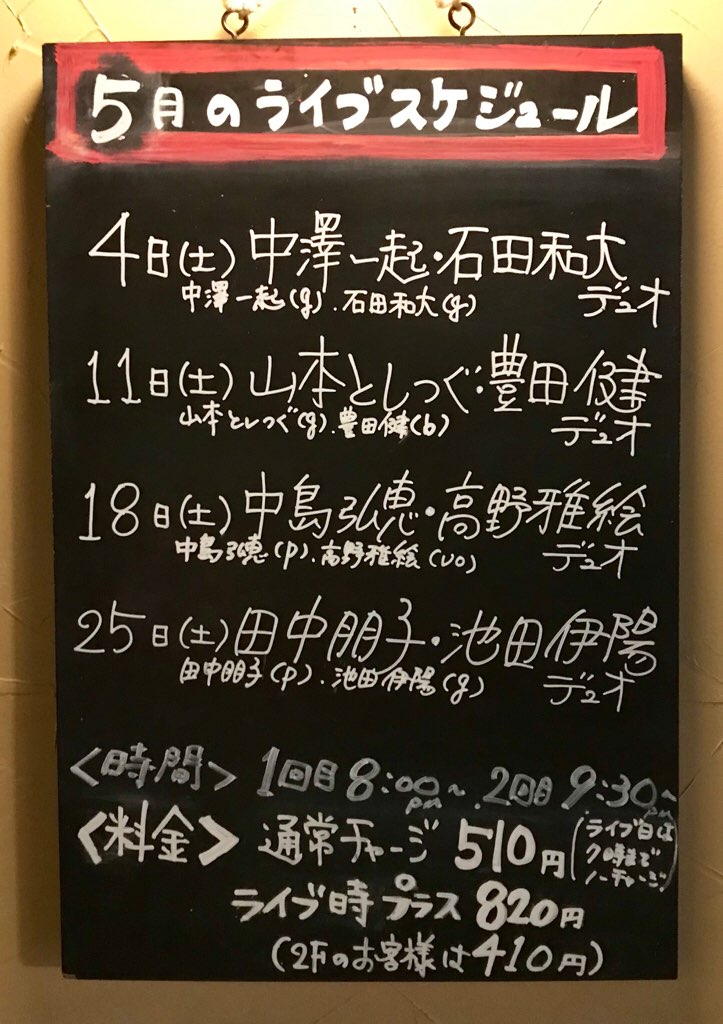 5月のライブスケジュール
4日(土)中澤一起・石田和大
デュオ
中澤一起(g).石田和大(g)
11日(土)山本としつぐ・豊田健
デュオ
山本としつぐ(g).豊田健(b)
18日(土)中島弘恵・高野雅絵
デュオ
中島弘恵(p).高野雅絵(vo)
25日(土)田中朋子・池田伊陽
デュオ
田中朋子(p).池田伊陽(g)
<時間> 1回目8:00pm~ 2回目9:30pm~
<料金> 通常チャージ510円(ライブ日は7時までノーチャージ)
ライブ時プラス820円
(2Fのお客様は410円)